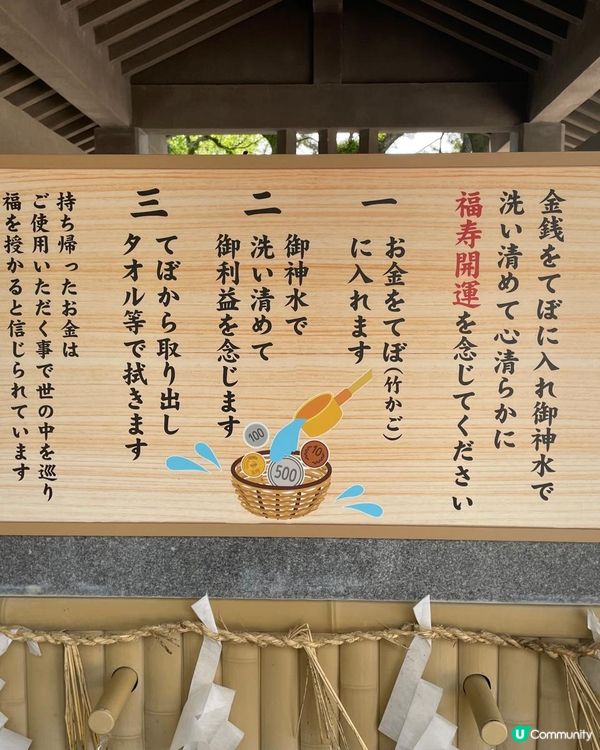 金銭をてぼに入れ御神水で
洗い清めて心清らかに
福寿開運を念じてください
一
お金をてぼ(竹かご)
に入れます
二
御神水で
洗い清めて
御利益を念じます
三
てぼから取り出し
タオル等で拭きます
持ち帰ったお金は
ご使用いただく事で世の中を巡り
福を授かると信じられています
100
10
500
U Community